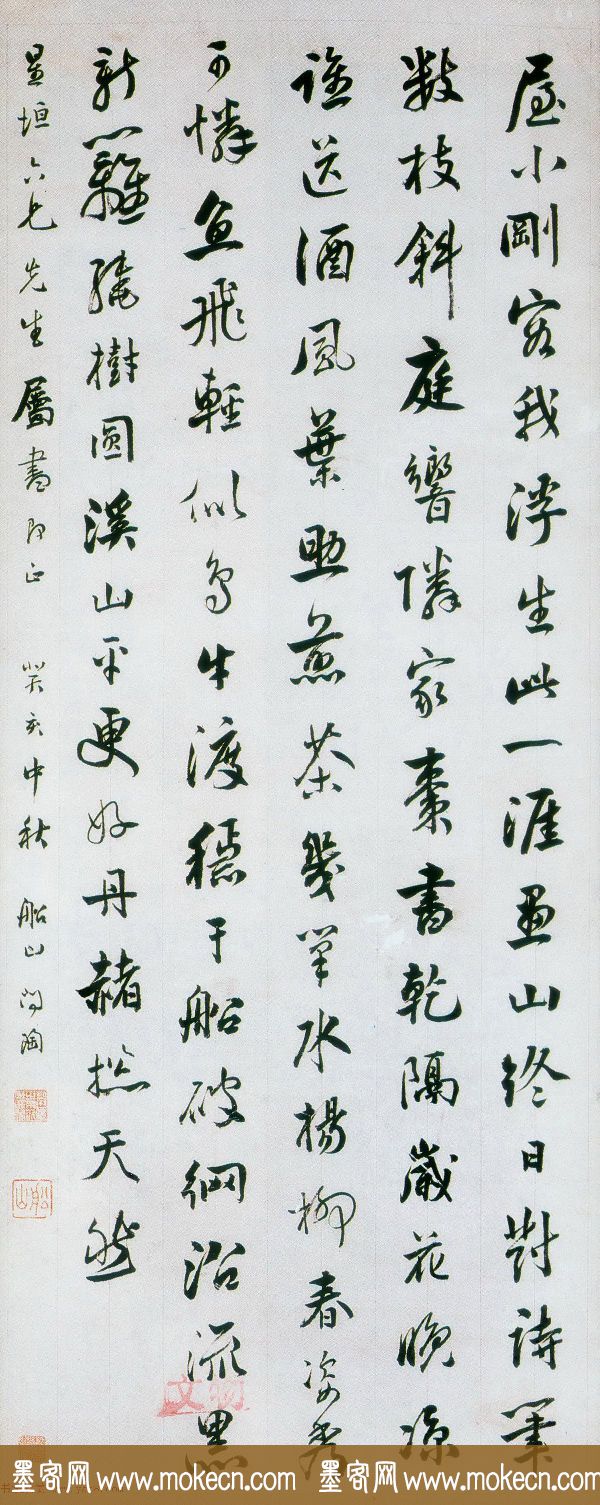 屋小剛容我浮生此一涯畫山終日對詩筆
數枝斜庭響隣家棗書乾隔歲花晚涼
誰送酒風葉助煎茶幾筆水楊柳春姿秀
可憐魚飛輕似鳥牛渡穩于船破網沿流黑
新籬繞樹圓溪山平更好丹赭捴天然
星垣六兄先生屬書即正 癸亥中秋 船山問陶
船山
文物
墨客网www.mokecn.com 墨客网www.mokecn.com